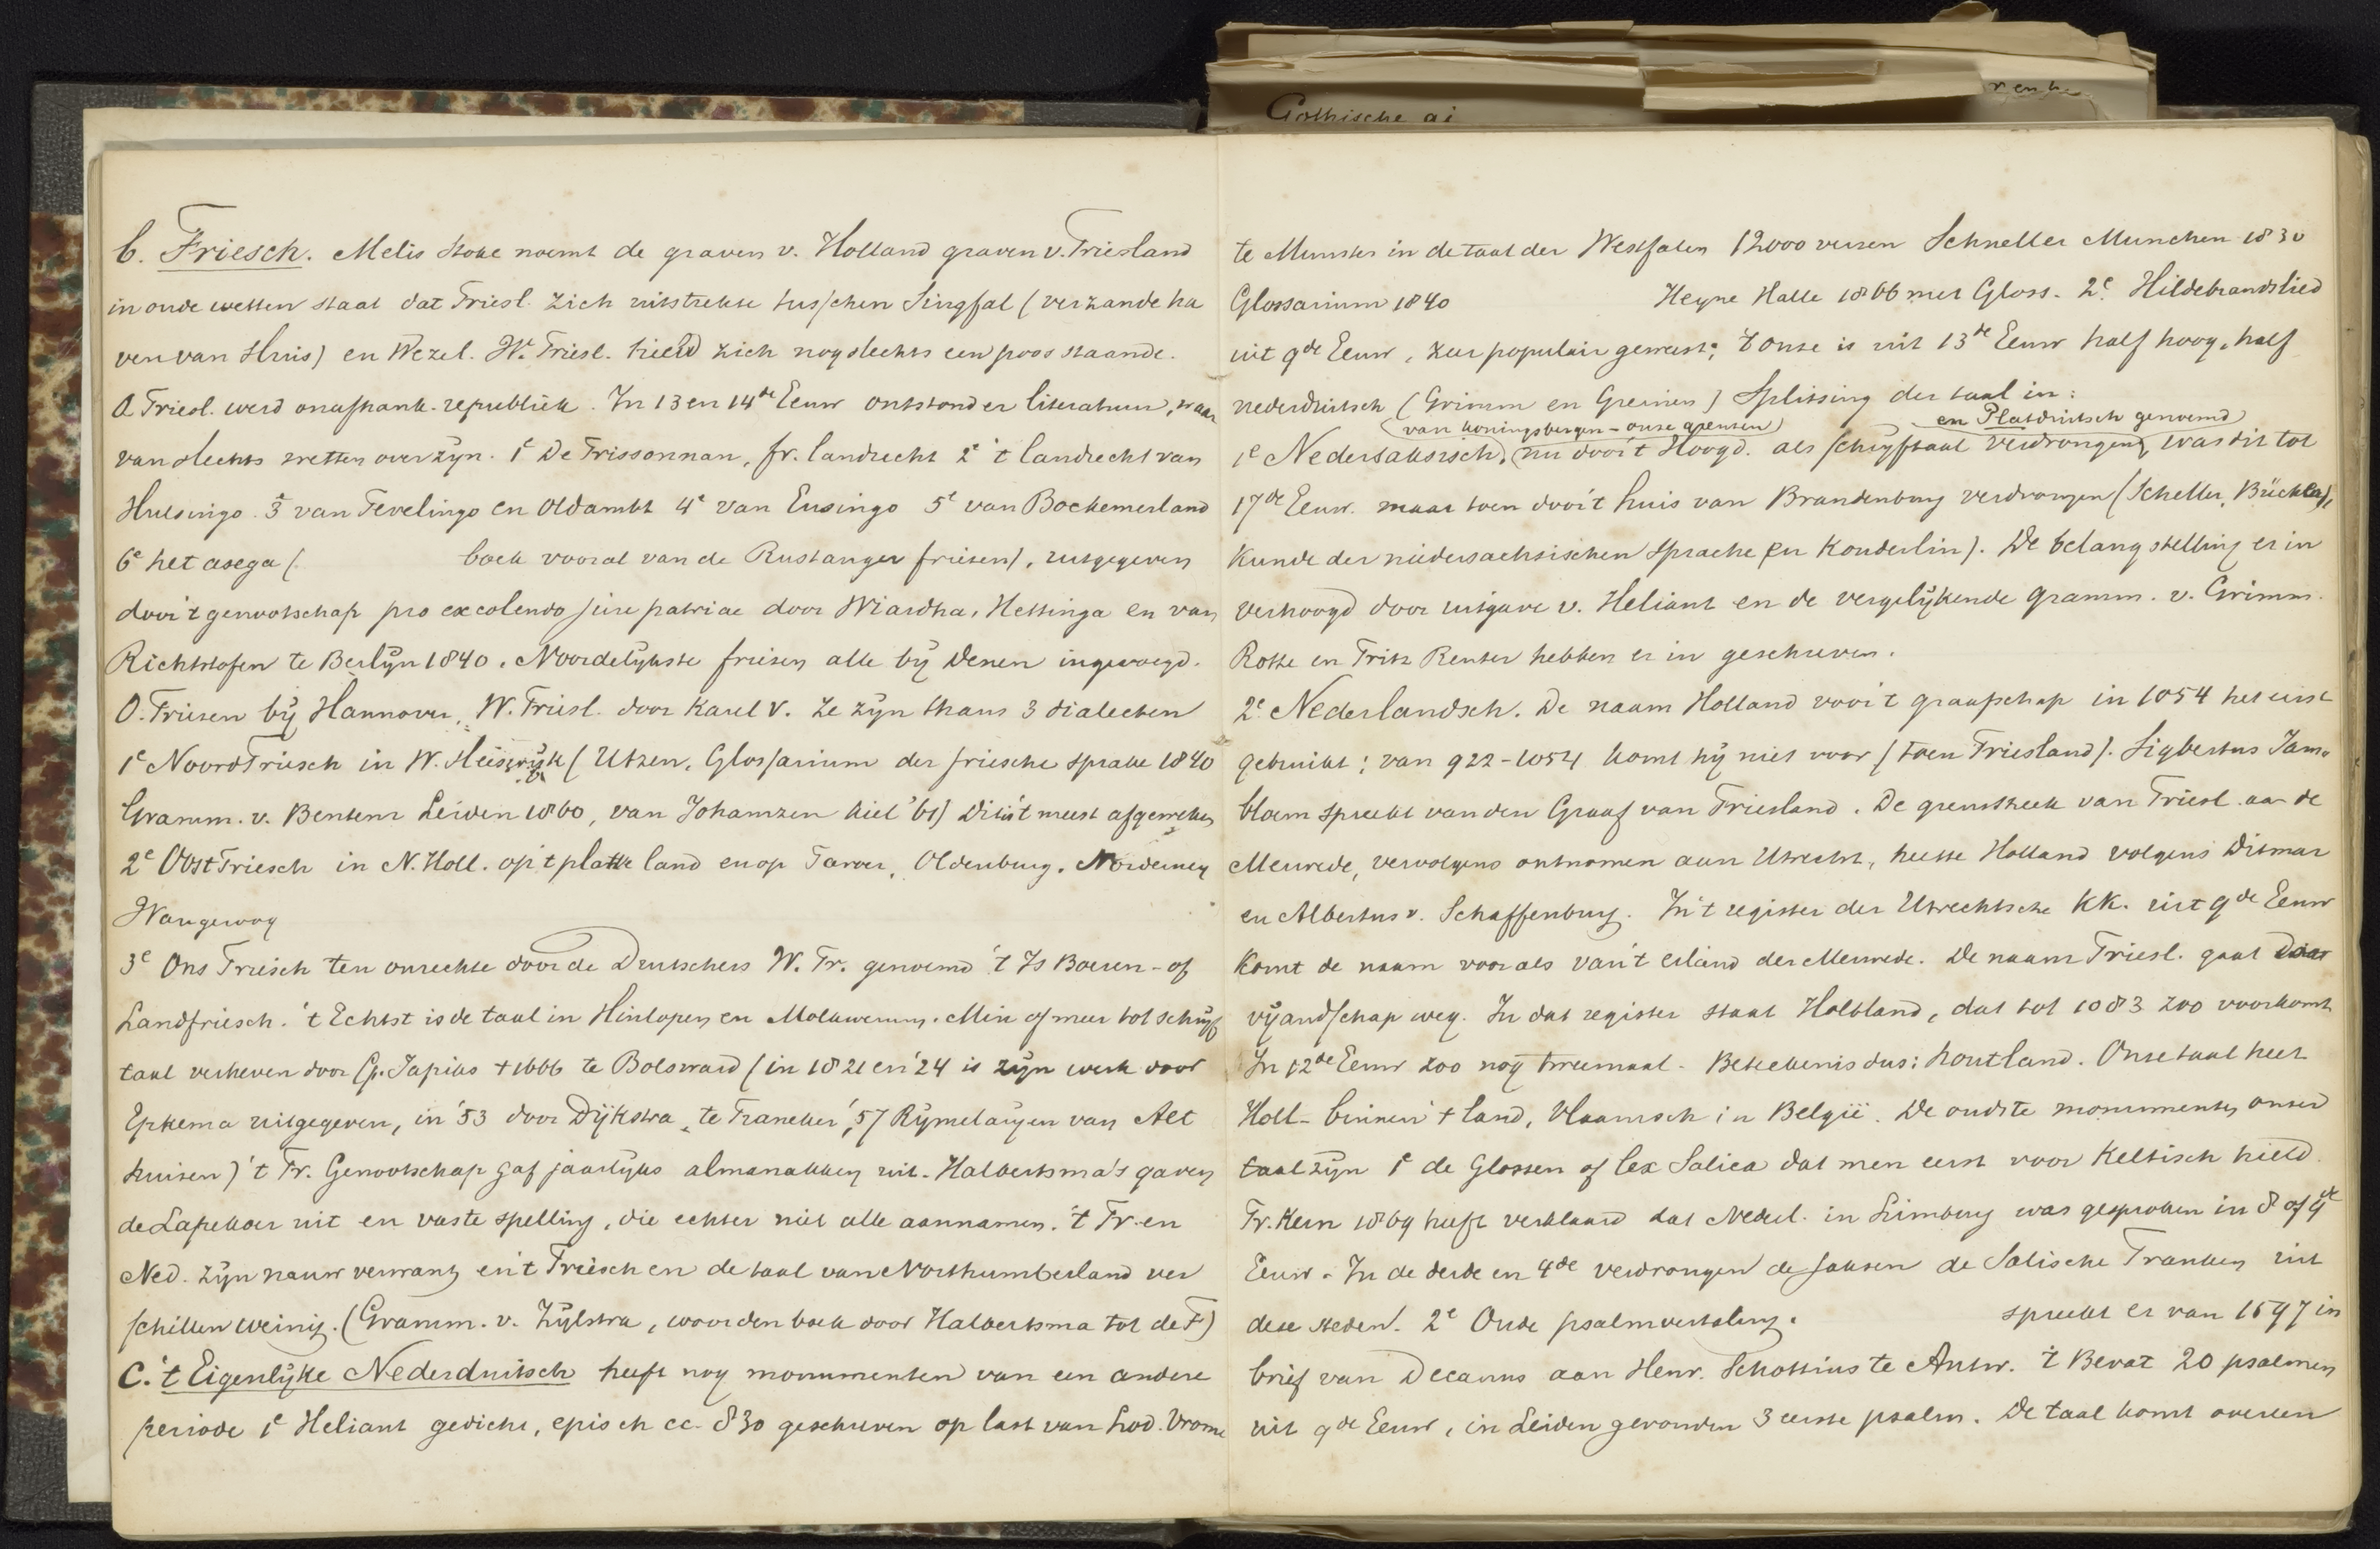 Gothische ai
b. Friesch. Melis Stoke noemt de graven v. Holland graven v. Friesland
in oude wetten staat dat Friesl. zich uitstrekte tusschen Singfal (verzande ha
ven van Sluis) en Wezel. W. Friesl. hield zich nog slechts een poos staande.
O. Friesl. werd onafhank. republiek. In 13 en 14de Eeuw ontstond er literatuur, waar
van slechts wetten over zijn. 1e De Frissonnan, fr. landrecht 2e 't landrecht van
Hulsingo 3e van Fevelingo en Oldambt 4e van Ensingo 5e van Bockemerland
6e het asega ( boek vooral van de Rustanger friesen), uitgegeven
door 't genootschap pro excolendo jure patriae door Wiardha, Hettinga en van
Richthofen te Berlijn 1840. Noordelijkste friesen alle bij Denen ingevoegd.
O. Friesen bij Hannover, W. Friesl. door Karel V. Ze zijn thans 3 dialecten
1e NoordFriesch in W. (Utzen, Glossarium der friesche sprake 1840
Gramm. v. Bentsen Leiden 1860, van Johanzen kiel '61) Dit is 't meest afgeweken
2e OostFriesch in N. Holl. op 't platte land en op Tarver, Oldenburg. Norderney
Wangeroog
3e Ons Friesch ten onrechte door de Deutschers W. Fr. genoemd 't Is Boeren- of
Landfriesch. 't Echtst is de taal in Hinlopen en Molkwerum. Min of meer tot schrijf
taal verheven door G. Japiks + 1666 te Bolsward (in 1821 en '24 is zijn werk door
Epkema uitgegeven, in '53 door Dijkstra te Franeker, '57 Rijmelarijen van Alt
huisen) 't Fr. Genootschap gaf jaarlijks almanakken uit. Halbertsma's gaven
de Lapekoer uit en vaste spelling, die echter niet alle aannamen. 't Fr. en
Ned. zijn nauw verwant en 't Friesch en de taal van Northumberland ver
schillen weinig. (Gramm. v. Zijlstra, woordenboek door Halbertsma tot de F)
C. 't Eigenlijke Nederduitsch heeft nog monumenten van een andere
periode 1e Heliant gedicht, episch cc. 830 geschreven op last van Lod. Vrome
te Munster in de taal der Westfalen 12000 verzen Schmeller Munchen 1830
Glossarium 1840 Heyne Halle 1866 met Gloss. 2e Hildebrandslied
uit 9de Eeuw, zeer populair geweest; 't onze is uit 13de Eeuw half hoog, half
nederduitsch (Grimm en Greinen) Splitsing der taal in:
(van koningsbergen - onze grenzen) en Platduitsch genoemd
1e Nedersaksisch, nu door 't Hoogd. als schrijftaal verdrongen, was dit tot
17de Eeuw. maar toen door 't huis van Brandenburg verdrongen (Scheller, Bücher,
Kunde der niedersachsischen Sprache en Konderlin). De belangstelling er in
verhoogd door uitgave v. Heliant en de vergelijkende gramm. v. Grimm.
Rotte en Fritz Reuter hebben er in geschreven.
2e Nederlandsch. De naam Holland voor 't graafschap in 1054 het eerst
gebruikt; van 922-1054 komt hij niet voor (toen Friesland). Sigbertus Jam
bloem spreekt van den Graaf van Friesland. De grensstreek van Friesl. aan de
Merwede, vervolgens ontnomen aan Utrecht, heette Holland volgens Ditmar
en Albertus v. Schaffenburg. In 't register der Utrechtsche KK. uit 9de Eeuw
komt de naam voor als van 't eiland der Merwede. De naam Friesl. gaat door
vijandschap weg. In dat register staat Holtland, dat tot 1083 zoo voorkomt
In 12de Eeuw zoo nog tweemaal. Beteekenis dus: houtland. Onze taal heet
Holl. binnen 't land, Vlaamsch in België. De oudste monumenten onzer
taal zijn 1e de Glossen of lex Salica dat men eerst voor Keltisch hield.
Fr. Kern 1869 heeft verklaard dat Nederl. in Limburg was gesproken in 8 of 9de
Eeuw. In de derde en 4de verdrongen de saksen de Salische Franken uit
deze steden. 2e Oude psalmvertaling. spreekt er van 1597 in
brief van Decanus aan Henr. Schottius te Antw. 't Bevat 20 psalmen
uit 9de Eeuw, in Leiden gevonden 3 eerste psalm. De taal komt overeen